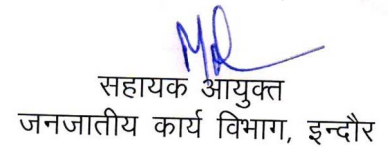 सहायक आयुक्त
जनजातीय कार्य विभाग, इन्दौर